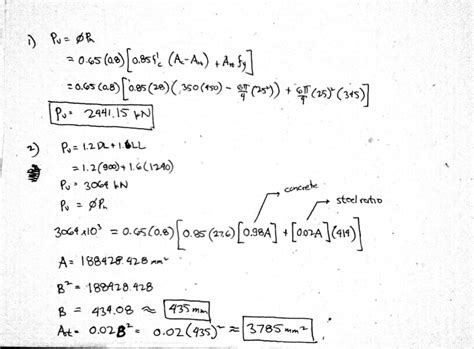 1) Pu = ØPn
= 0.65 (0.8) [0.85f'c (Ac-Ast) + Ast fy]
= 0.65 (0.8) [0.85 (28) (350(450) - 6π/4 (25²)) + 6π/4 (25)² (345)]
Pu = 2441.15 kN
2) Pu = 1.2 DL + 1.6LL
= 1.2 (900) + 1.6 (1240)
Pu = 3064 kN
Pu = ØPn
concrete
steel ratio
3064 x10³ = 0.65 (0.8) [0.85 (27.6) [0.98A] + [0.02A] (414)]
A = 188428.428 mm²
B² = 188428.428
B = 434.08 ≈ 435 mm
Ast = 0.02B² = 0.02 (435)² ≈ 3785 mm²